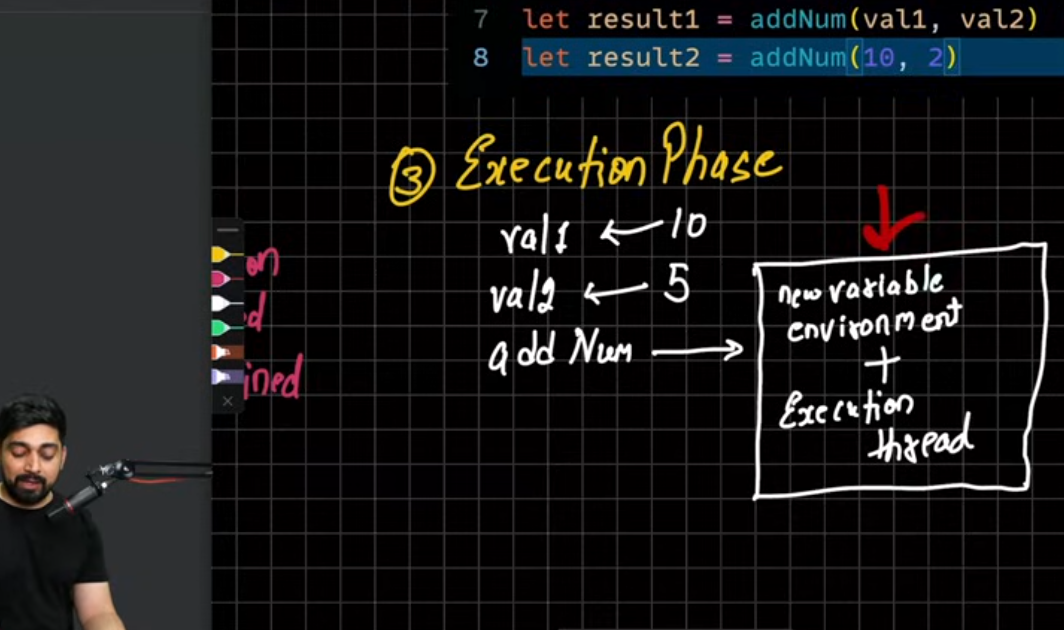 7 let result1 = addNum(val1, val2)
8 let result2 = addNum(10, 2)
3 Execution Phase
val1 ← 10
val2 ← 5
addNum →
new variable
environment
+
Execution
thread